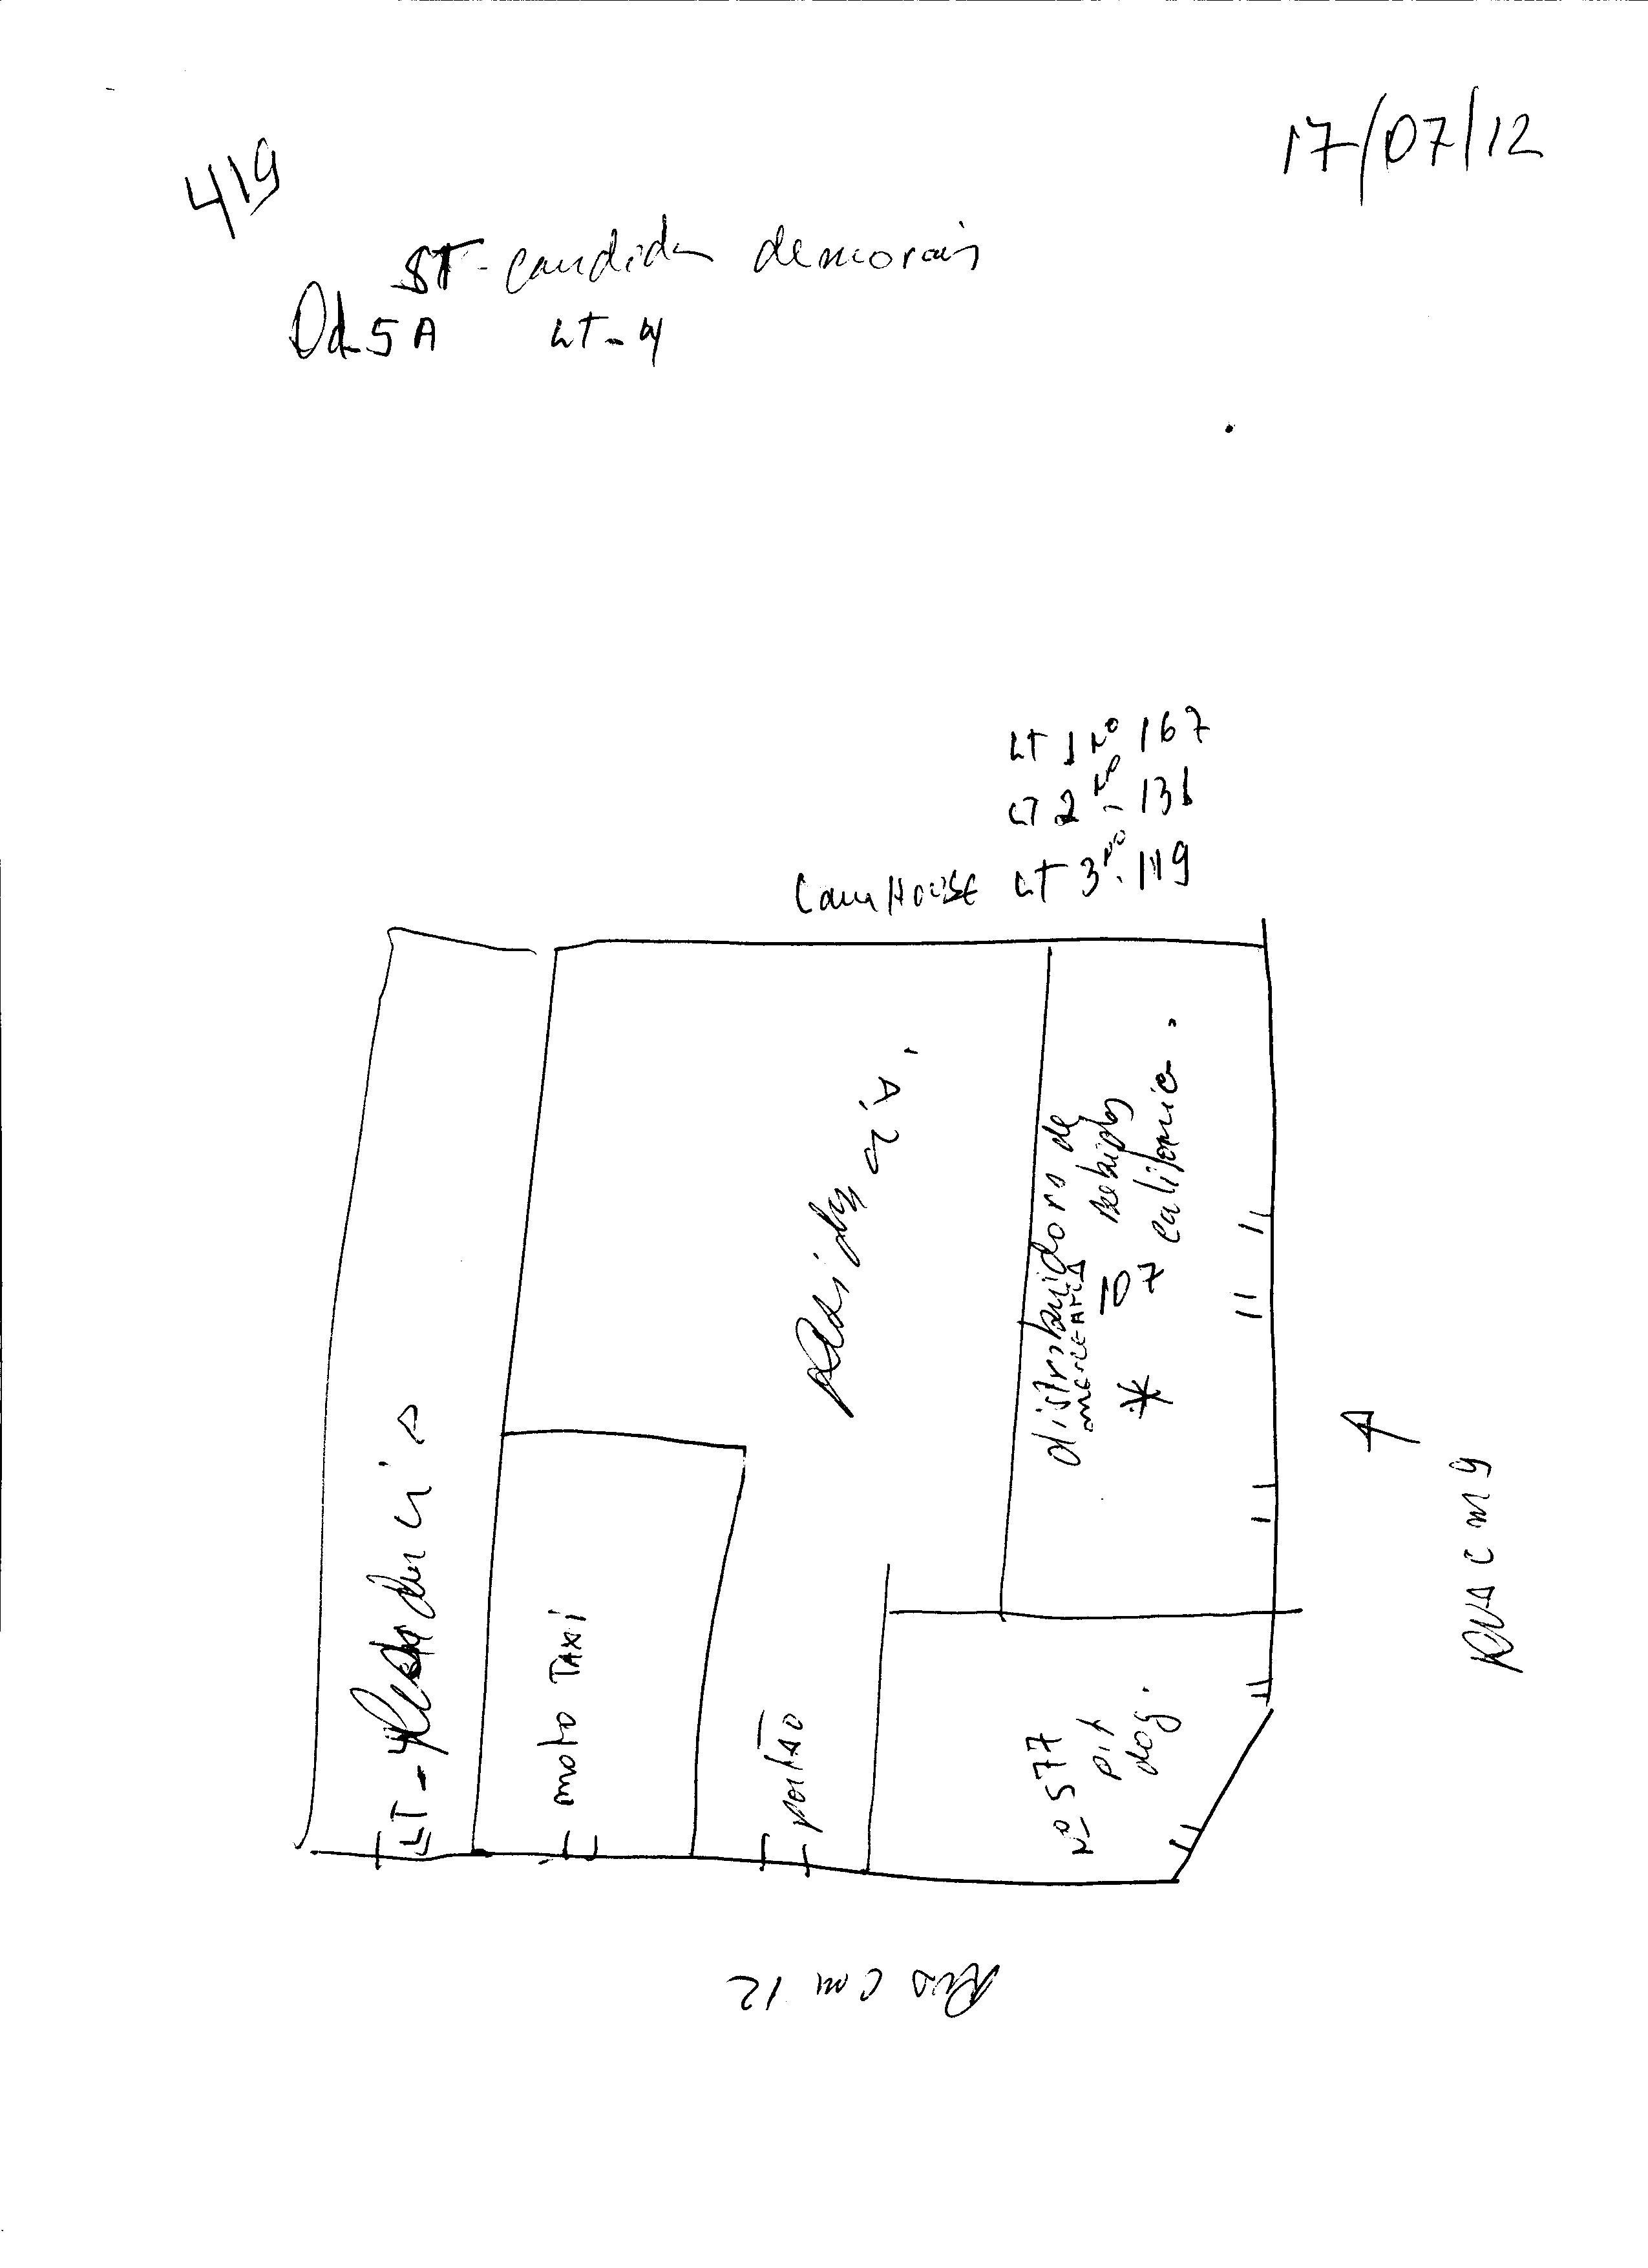 419
17/07/12
ST-candida demorais
Qd 5A LT-4
LT 1 Nº 167
LT 2 Nº - 136
LT 3 Nº. 119
LT-4 Residencia
moto TAXi
portão
Residencia.
distribuidora de
Bebidas
california.
MERCEARIA
* 107
Nº 577
pit
dog.
RUA cm 9
Rua cm 12